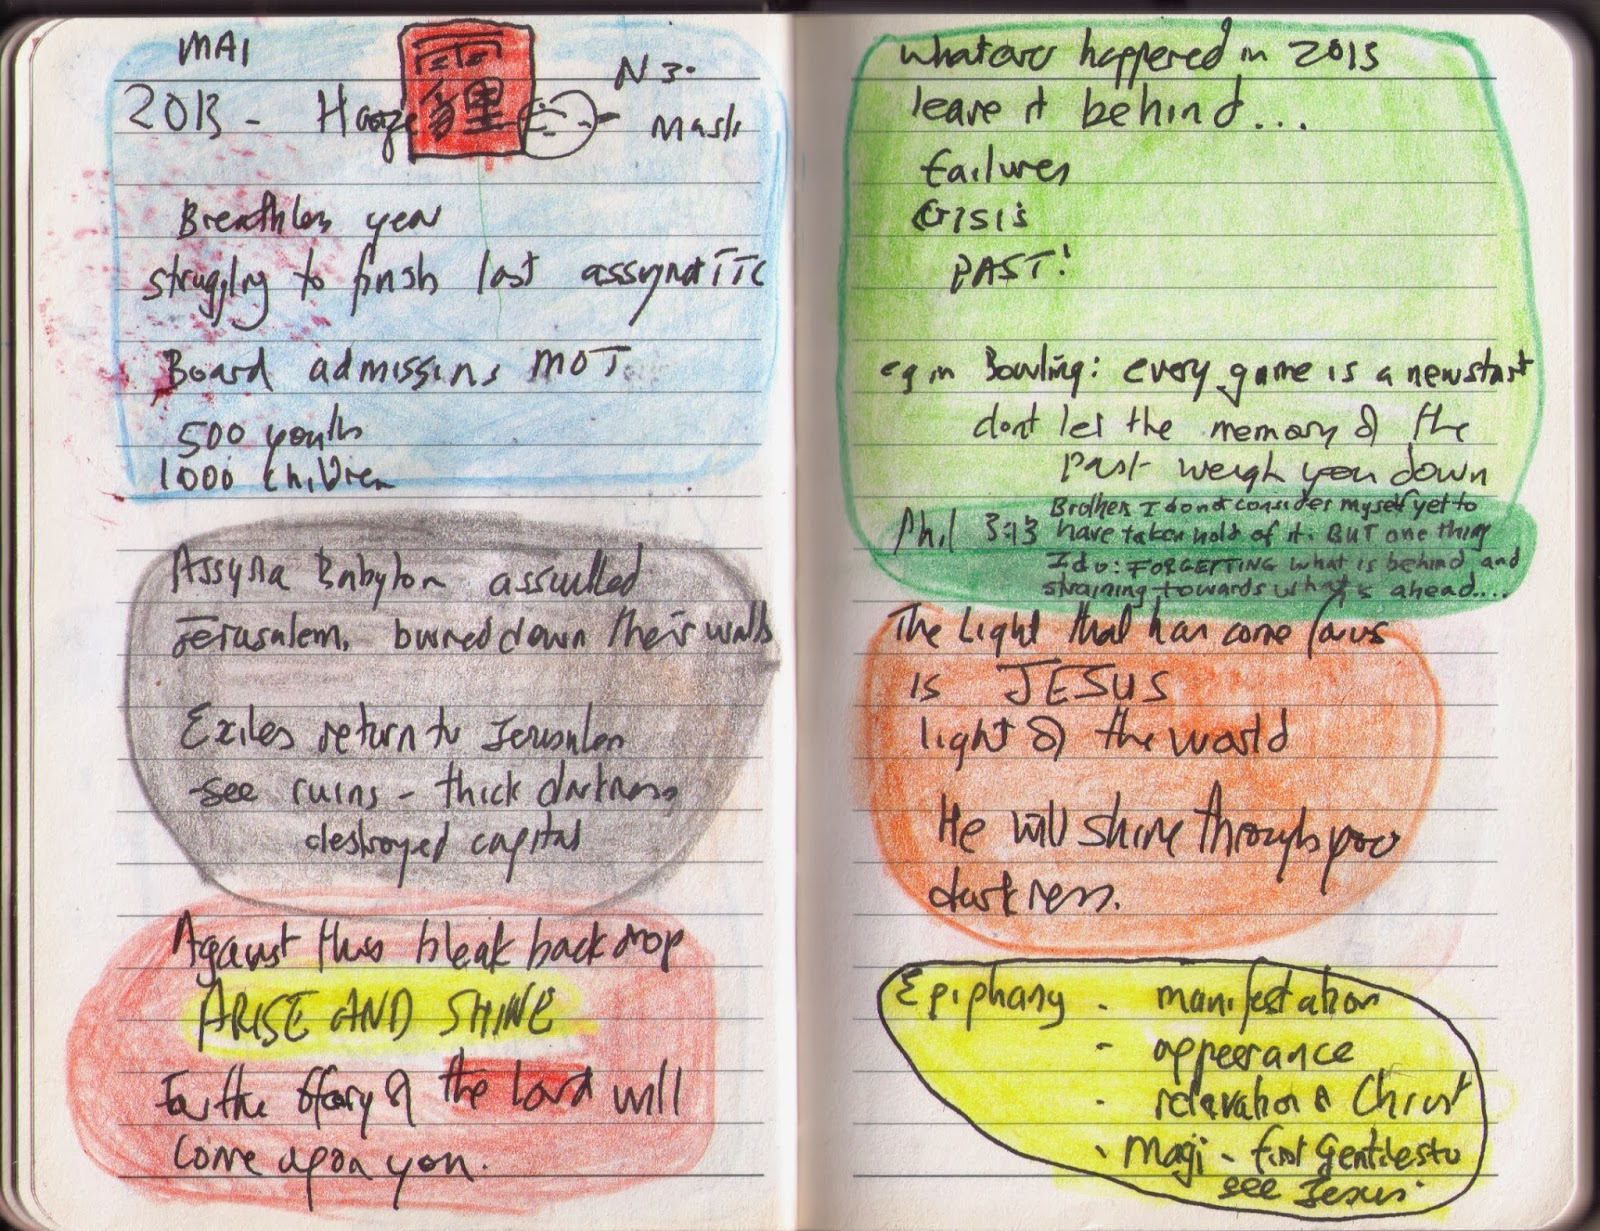 MAI
霾
2013 - Haze
N 3.
Mask
Breathless year
struggling to finish last assignt TTC
Board admissions MOT
500 youths
1000 children
Assyria Babylon assulted
Jerusalem, burned down their walls
Exiles return to Jerusalem
- see ruins - thick darkness
destroyed capital
Against this bleak back drop
ARISE AND SHINE
For the glory of the Lord will
come upon you.
whatever happened in 2013
leave it behind...
failures
crisis
PAST!
eg in Bowling: every game is a new start
dont let the memory of the
past weigh you down
Phil 3:13 Brother I do not consider myself yet to
have taken hold of it. BUT one thing
I do: FORGETTING what is behind and
straining towards what's ahead....
The Light that has come for us
is JESUS
light of the world
He will shine through
darkness.
Epiphany - manifestation
- appearance
- of Christ
- Magi - first Gentiles to
see Jesus.